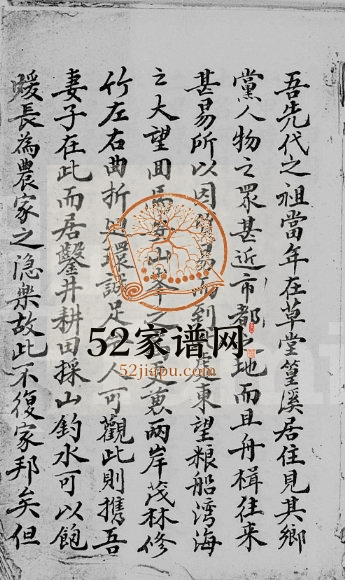 吾先代之祖當年在草堂篁溪居住見其鄉
黨人物之眾甚近市都之地而且舟楫往來
甚易所以因貿易到處東望粮船湾海
之大望回馬山峯之更裏兩岸茂林修
竹左右曲折環誌足人可觀此則携吾
妻子在此而居鑿井耕田採山釣水可以飽
煖長為農家之隐樂故此不復家邦矣但
52家谱网
52jiapu.com